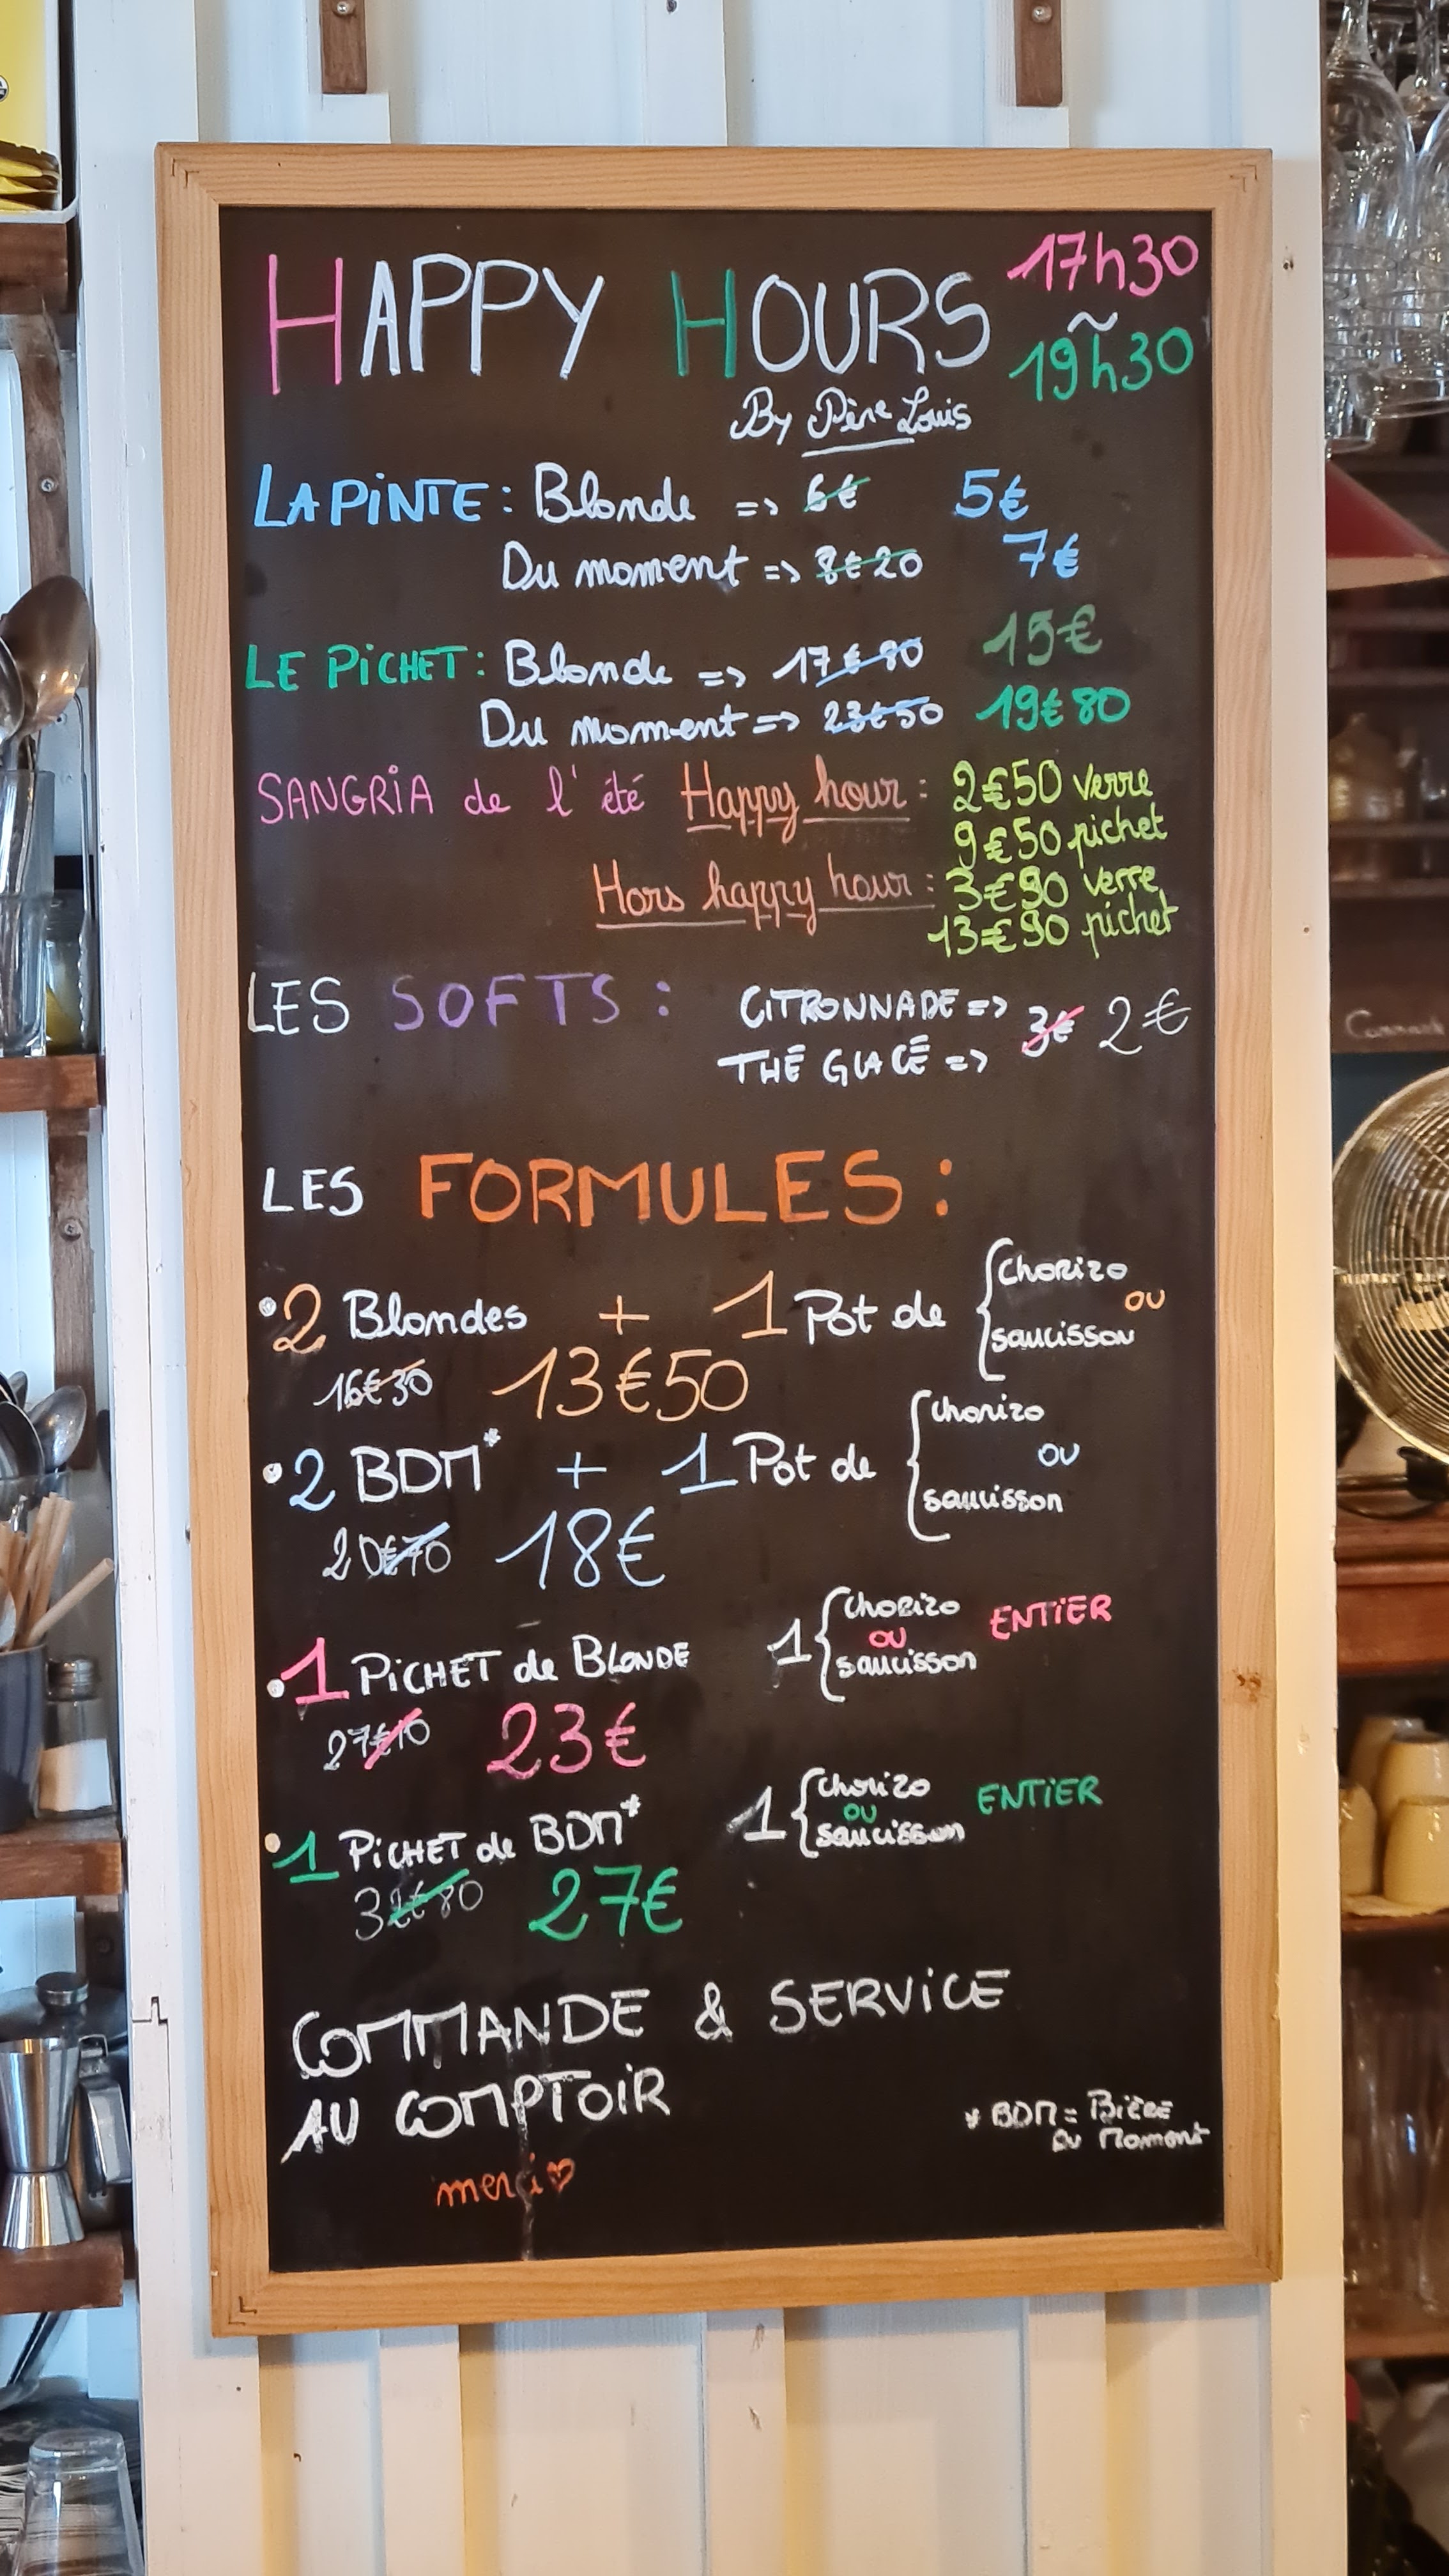 HAPPY HOURS 17h30
~
19h30
By Père Louis
LA PINTE : Blonde => 6€ 5€
Du moment => 8€20 7€
LE PICHET : Blonde => 17€90 15€
Du moment => 23€50 19€80
SANGRIA de l'été Happy hour : 2€50 verre
9€50 pichet
Hors happy hour : 3€90 verre
13€90 pichet
LES SOFTS : CITRONNADE =>
3€ 2€
THÉ GLACÉ =>
LES FORMULES :
• 2 Blondes + 1 Pot de { Chorizo
ou
saucisson
16€30 13€50
• 2 BDM* + 1 Pot de { Chorizo
ou
saucisson
20€70 18€
• 1 PICHET de BLONDE 1 { Chorizo
ou
saucisson
ENTIER
27€10 23€
• 1 PICHET de BDM* 1 { Chorizo
ou
saucisson
ENTIER
32€80 27€
COMMANDE & SERVICE
AU COMPTOIR
merci ♡
* BDM = Bière
Du Moment